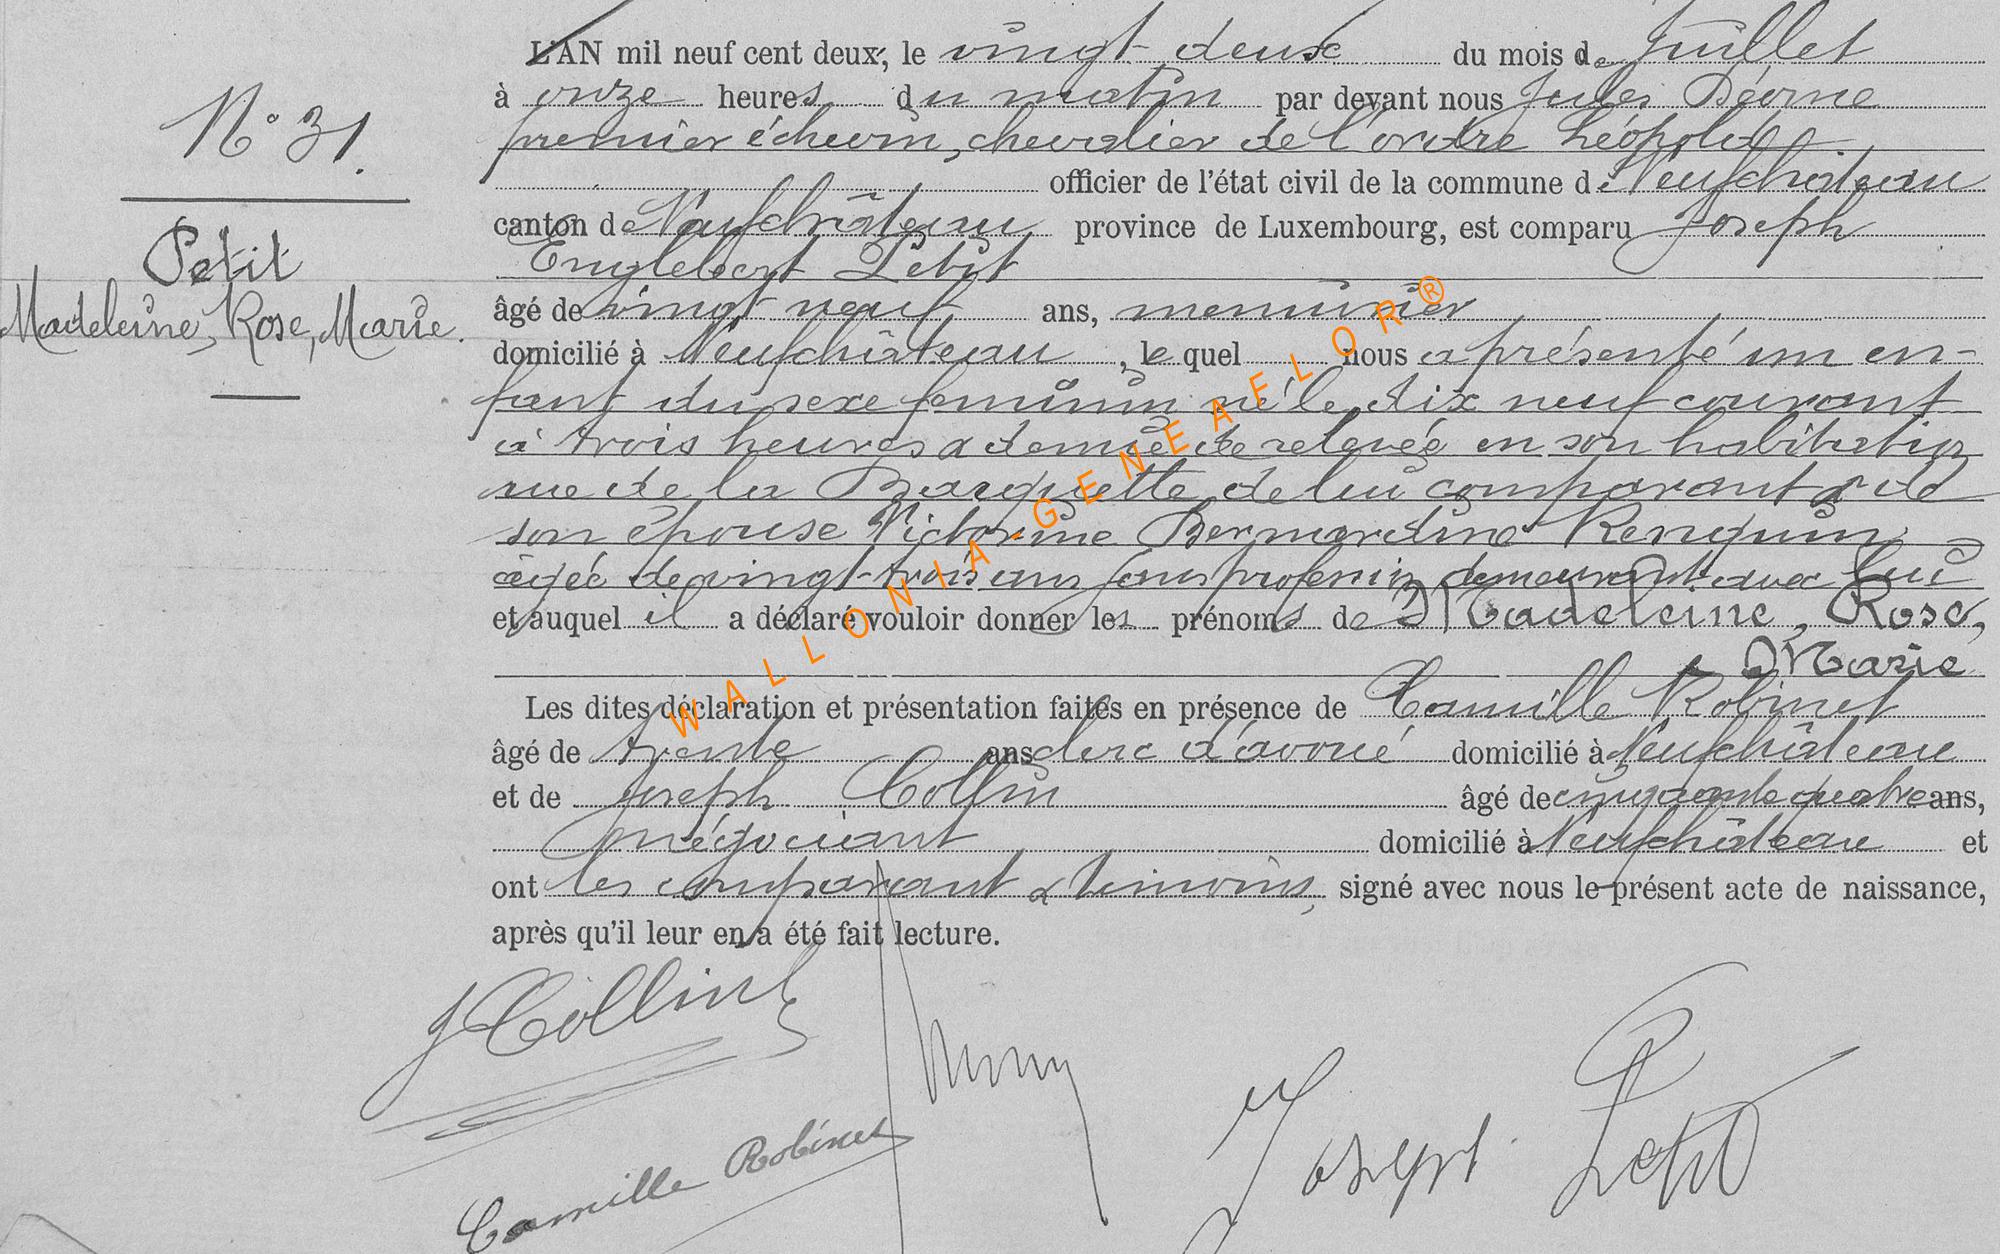 L'AN mil neuf cent deux, le vingt deux du mois de Juillet
à onze heures du matin par devant nous Jules
premier échevin, chevalier de l'ordre Léopold
officier de l'état civil de la commune de Neufchâteau
canton de Neufchâteau province de Luxembourg, est comparu Joseph
Englebert Petit
âgé de vingt neuf ans, menuisier
domicilié à Neufchâteau, le quel nous a présenté un en-
fant du sexe féminin né le dix neuf courant
à trois heures & demie de relevée en son habitation
rue de la Barquette, de lui comparant & de
son épouse Victorine Bernardine Renquin
âgée de vingt-trois ans sans profession demeurant avec lui
et auquel il a déclaré vouloir donner les prénoms de Madeleine, Rose,
Marie
Les dites déclaration et présentation faites en présence de Camille Robinet
âgé de trente ans clerc d'avoué domicilié à Neufchâteau
et de Joseph Collin âgé de cinquante quatre ans,
négociant domicilié à Neufchâteau et
ont les comparant & témoins, signé avec nous le présent acte de naissance,
après qu'il leur en a été fait lecture.
N° 31.
Petit
Madeleine, Rose, Marie.
J Collin
Camille Robinet
Joseph Petit
WALLONIA-GENEAFLOR®